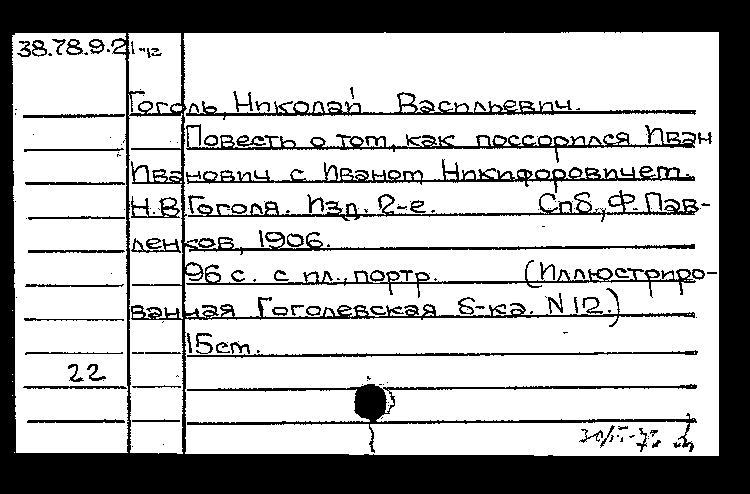 38.78.9.21-12
Гоголь, Николай Васильевич.
Повесть о том, как поссорился Иван
Иванович с Иваном Никифоровичем.
Н.В.Гоголя. Изд. 2-е. Спб., Ф. Пав-
ленков, 1906.
96 с. с ил., портр. (Иллюстриро-
ванная Гоголевская б-ка. N 12.)
15см.
22